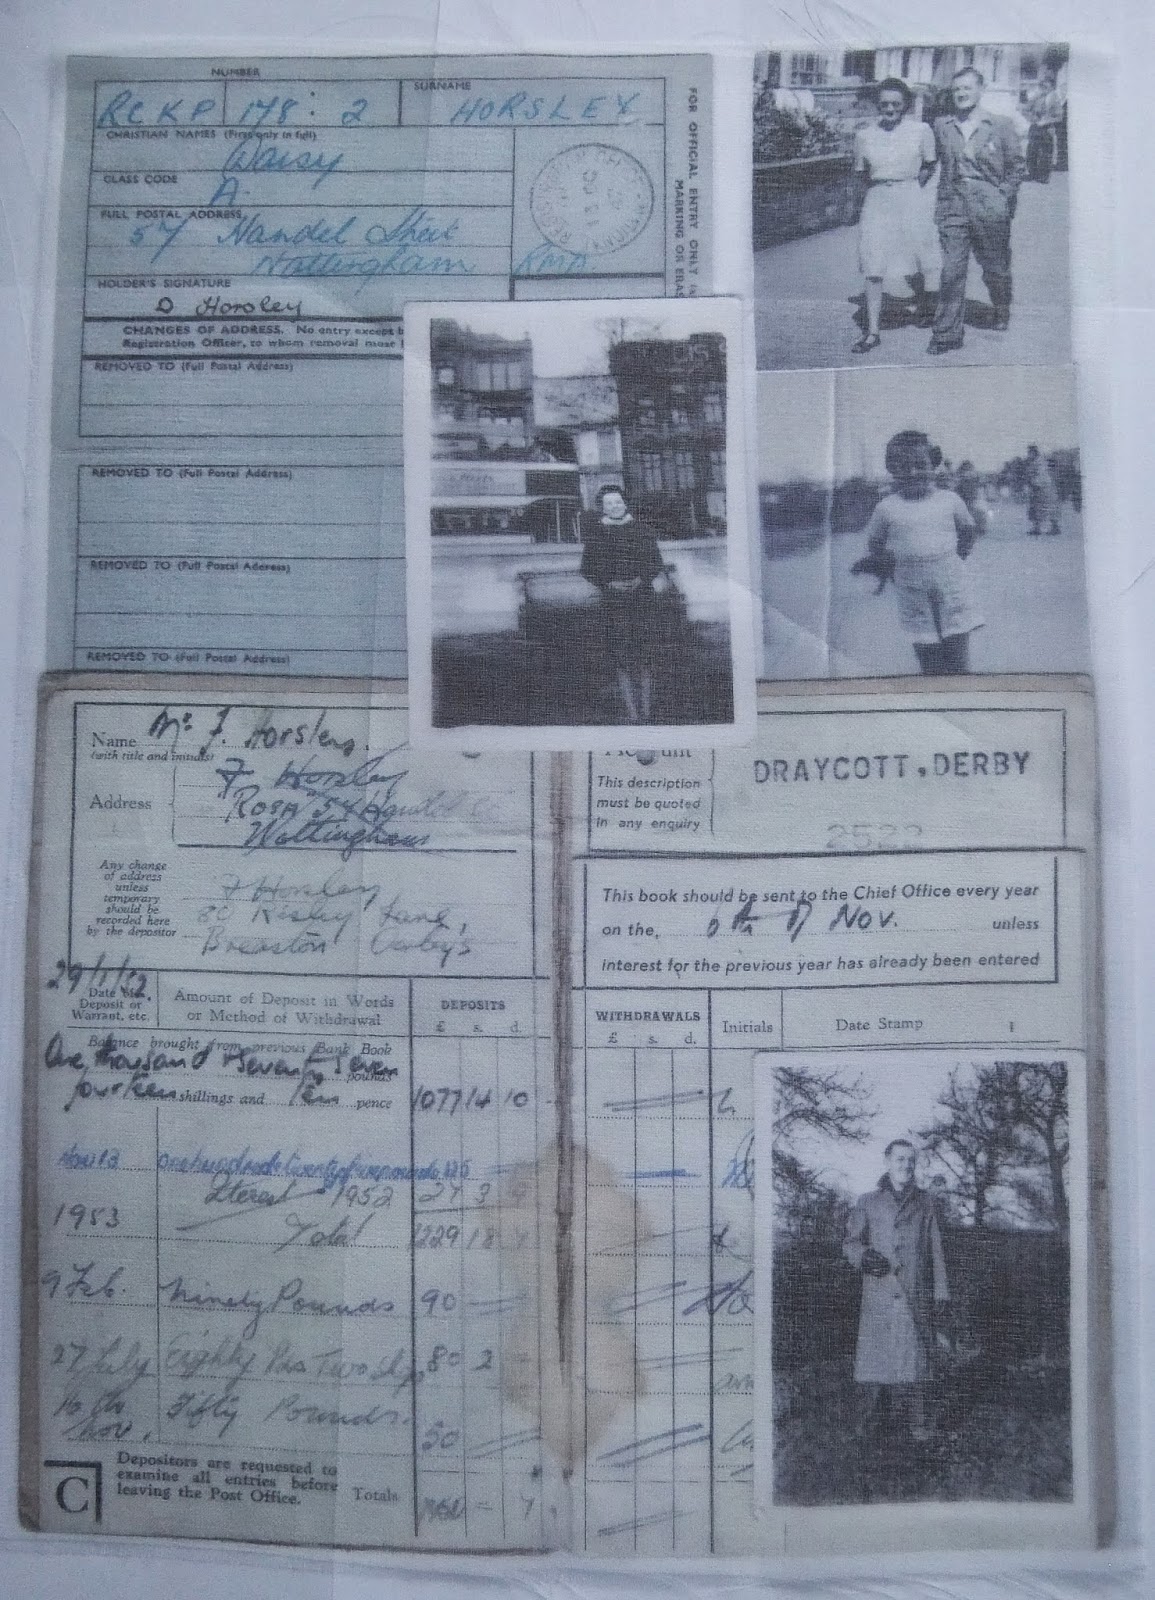 NUMBER
SURNAME
RCKP 178: 2 HORSLEY
CHRISTIAN NAMES (First only in full)
Daisy
CLASS CODE
A.
FULL POSTAL ADDRESS
57 Handel Street
Nottingham
HOLDER'S SIGNATURE
D Horsley
CHANGES OF ADDRESS. No entry except
Registration Officer, to whom removal must
REMOVED TO (Full Postal Address)
REMOVED TO (Full Postal Address)
REMOVED TO (Full Postal Address)
REMOVED TO (Full Postal Address)
FOR OFFICIAL ENTRY ONLY
MARKING OR ERAS
Name Mr F. Horsley.
(with title and initials)
F Horsley
Address
Nottingham
Any change
of address
unless
temporary
should be
recorded here
by the depositor
F Horsley
80 Risley Lane
Breaston
This description
must be quoted
in any enquiry
DRAYCOTT, DERBY
2522
This book should be sent to the Chief Office every year
on the, 6th of Nov. unless
interest for the previous year has already been entered
29/1/52
Date
Deposit or
Warrant, etc.
Amount of Deposit in Words
or Method of Withdrawal
DEPOSITS
£ s. d.
WITHDRAWALS
£ s. d.
Initials
Date Stamp
Balance brought from previous Bank Book
One thousand Seventy Seven pounds
fourteen shillings and Ten pence 1077 14 10
Interest 1952 27 3
1953 Total 1229 18
9 Feb. Ninety Pounds 90
27 July Eighty Two 80 2
Nov. Fifty Pounds. 50
C
Depositors are requested to
examine all entries before
leaving the Post Office.
Totals